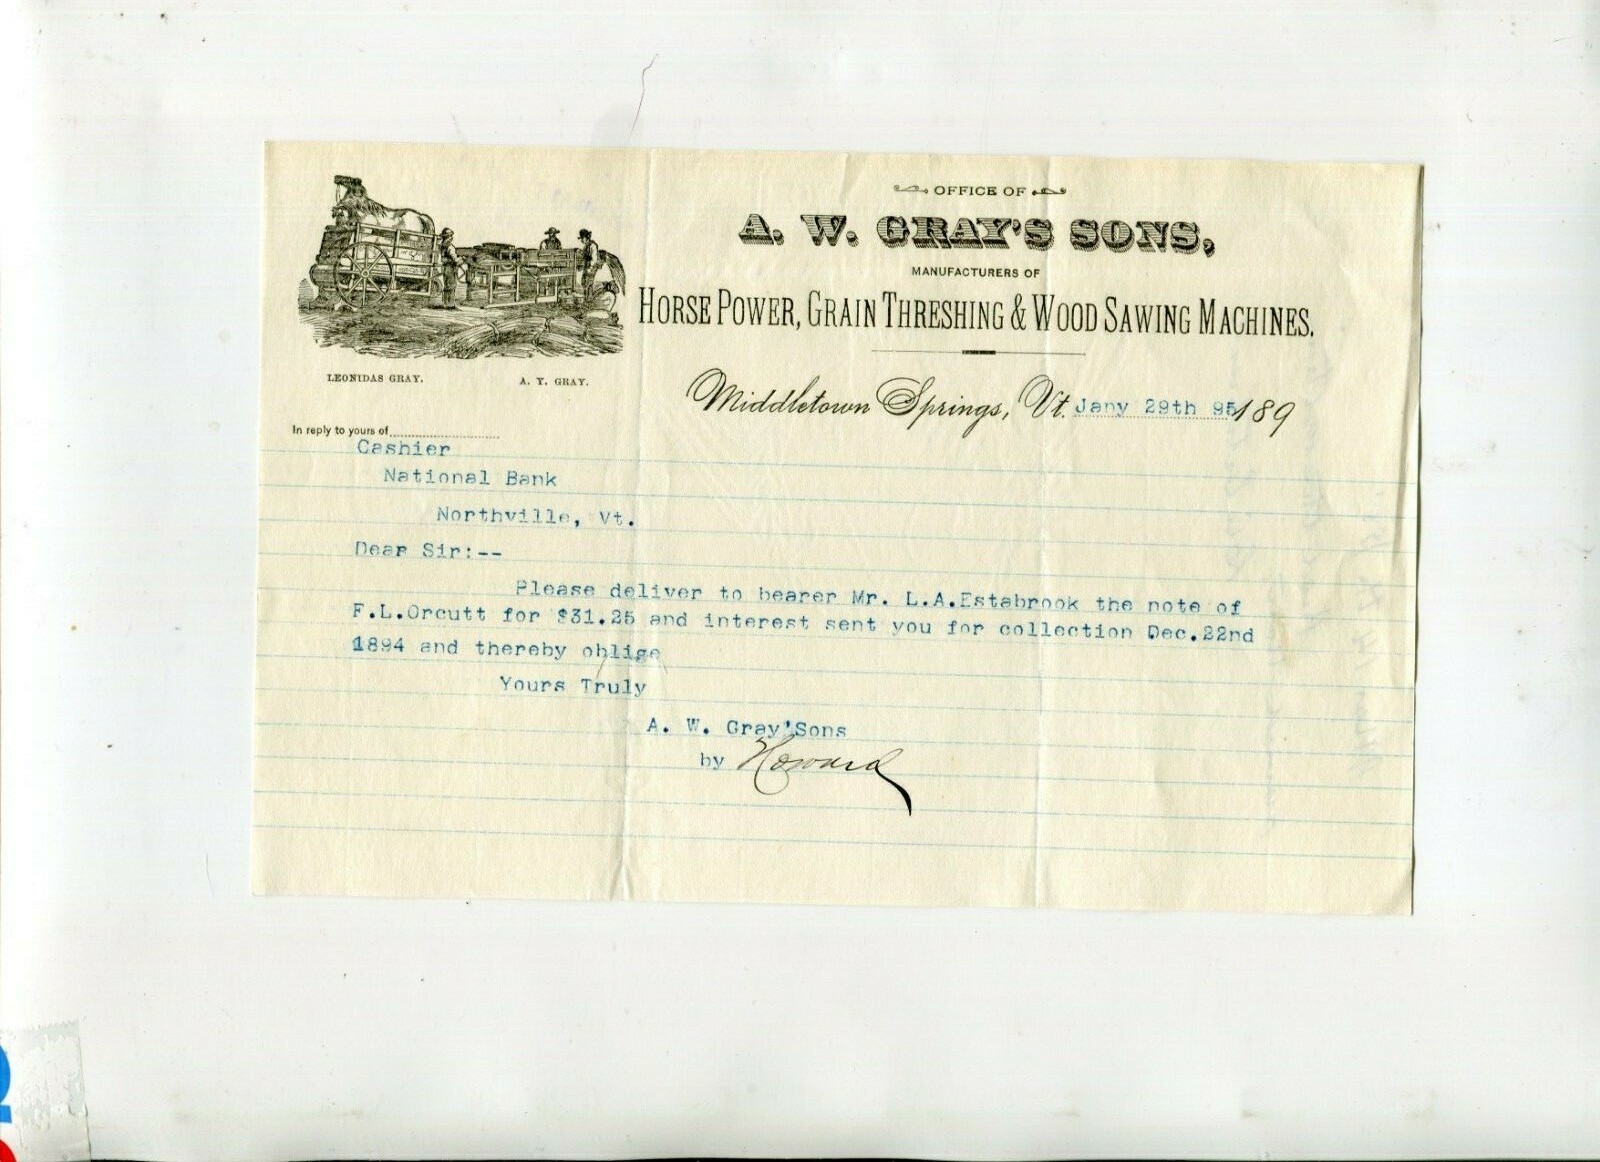 OFFICE OF
A. W. GRAY'S SONS,
MANUFACTURERS OF
HORSE POWER, GRAIN THRESHING & WOOD SAWING MACHINES.
LEONIDAS GRAY. A. Y. GRAY.
Middletown Springs, Vt. Jany 29th 95 189
In reply to yours of
Cashier
National Bank
Northville, Vt.
Dear Sir:--
Please deliver to bearer Mr. L.A.Estabrook the note of
F.L.Orcutt for $31.25 and interest sent you for collection Dec.22nd
1894 and thereby oblige
Yours Truly
A. W. Gray'Sons
by Howard